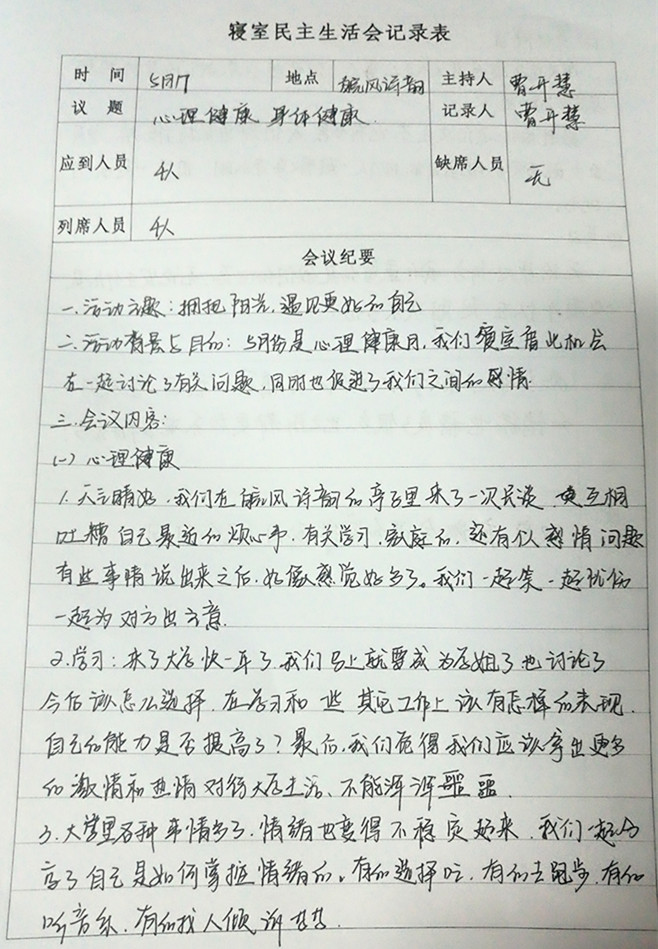 寝室民主生活会记录表
时 间 5月7 地点 旋风诗韵 主持人 曹开慧
议 题 心理健康 身体健康. 记录人 曹开慧
应到人员 4人 缺席人员 无
列席人员 4人
会议纪要
一.活动主题:拥抱阳光,遇见更好的自己
二.活动背景与目的:5月份是心理健康月,我们寝室借此机会
在一起讨论了有关问题,同时也促进了我们之间的感情.
三.会议内容:
(一)心理健康
1.天气晴好,我们在旋风诗韵的亭子里来了一次长谈,互相
吐糟自己最近的烦心事,有关学习,家庭的,还有似感情问题
有些事情说出来之后,好像感觉好多了。我们一起笑一起忧伤
一起为对方出主意.
2.学习:来了大学快一年了,我们马上就要成为学姐了也讨论了
今后该怎么选择,在学习和一些其它工作上该有怎样的表现,
自己的能力是否提高了?最后,我们觉得我们应该拿出更多
的激情和热情对待大学生活、不能浑浑噩噩.
3.大学里各种事情多了,情绪也变得不稳定起来,我们一起分
享了自己是如何掌控情绪的。有的选择吃,有的去跑步,有的
听音乐,有的找人倾诉